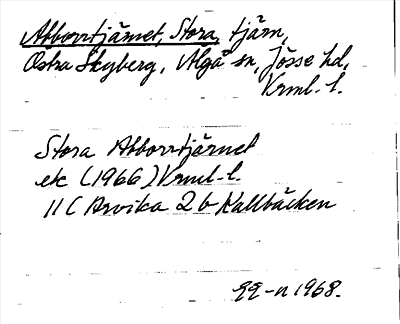 Abborrtjärnet, Stora, tjärn,
Östra Skyberg, Älgå sn, Jösse hd,
Vrml. l.
Stora Abborrtjärnet
ek (1966) Vrml. l.
11 C Arvika 2 b Kallbäcken
1968.